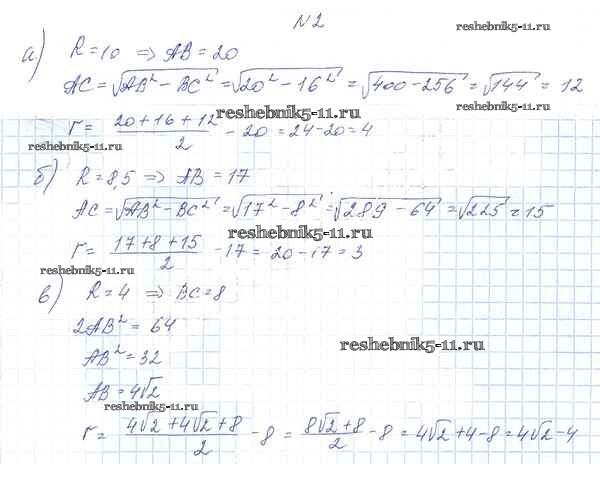 N2
reshebnik5-11.ru
а) R=10 => AB=20
AC=√AB²-BC² = √20²-16² = √400-256 = √144 = 12
reshebnik5-11.ru
r = (20+16+12)/2 - 20 = 24-20 = 4
reshebnik5-11.ru
reshebnik5-11.ru
б) R=8,5 => AB=17
AC=√AB²-BC² = √17²-8² = √289-64 = √225 = 15
reshebnik5-11.ru
r = (17+8+15)/2 - 17 = 20-17 = 3
reshebnik5-11.ru
в) R=4 => BC=8
2AB² = 64
AB² = 32
reshebnik5-11.ru
AB=4√2
reshebnik5-11.ru
r = (4√2+4√2+8)/2 - 8 = (8√2+8)/2 - 8 = 4√2+4-8 = 4√2-4